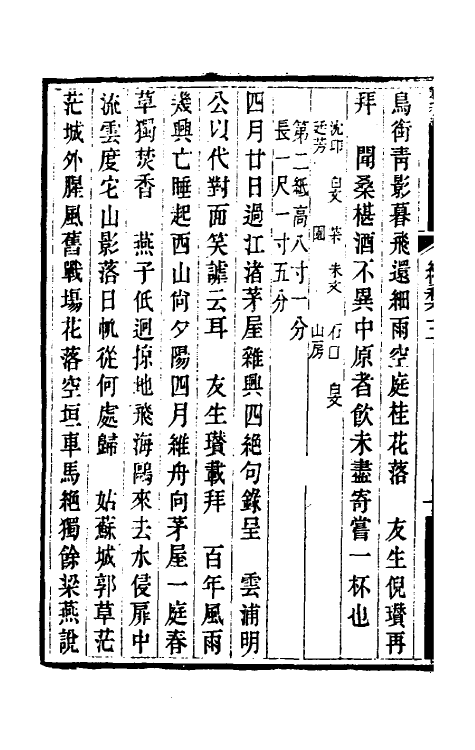 鳥銜靑影暮飛還細雨空庭桂花落　友生倪瓚再
拜　聞桑椹酒不異中原者飲未盡寄嘗一杯也
沈印　白文　葉　朱文　石口　白文
廷芳　園　山房
第二紙高八寸一分
長一尺一寸五分
四月廿日過江渚茅屋雜興四絕句錄呈　雲浦明
公以代對面笑謔云耳　友生瓚載拜　百年風雨
幾興亡睡起西山尙夕陽四月維舟向茅屋一庭春
草獨焚香　燕子低迴掠地飛海鷗來去水侵扉中
流雲度它山影落日帆從何處歸　姑蘇城郭草茫
茫城外腥風舊戰場花落空垣車馬絕獨餘梁燕說